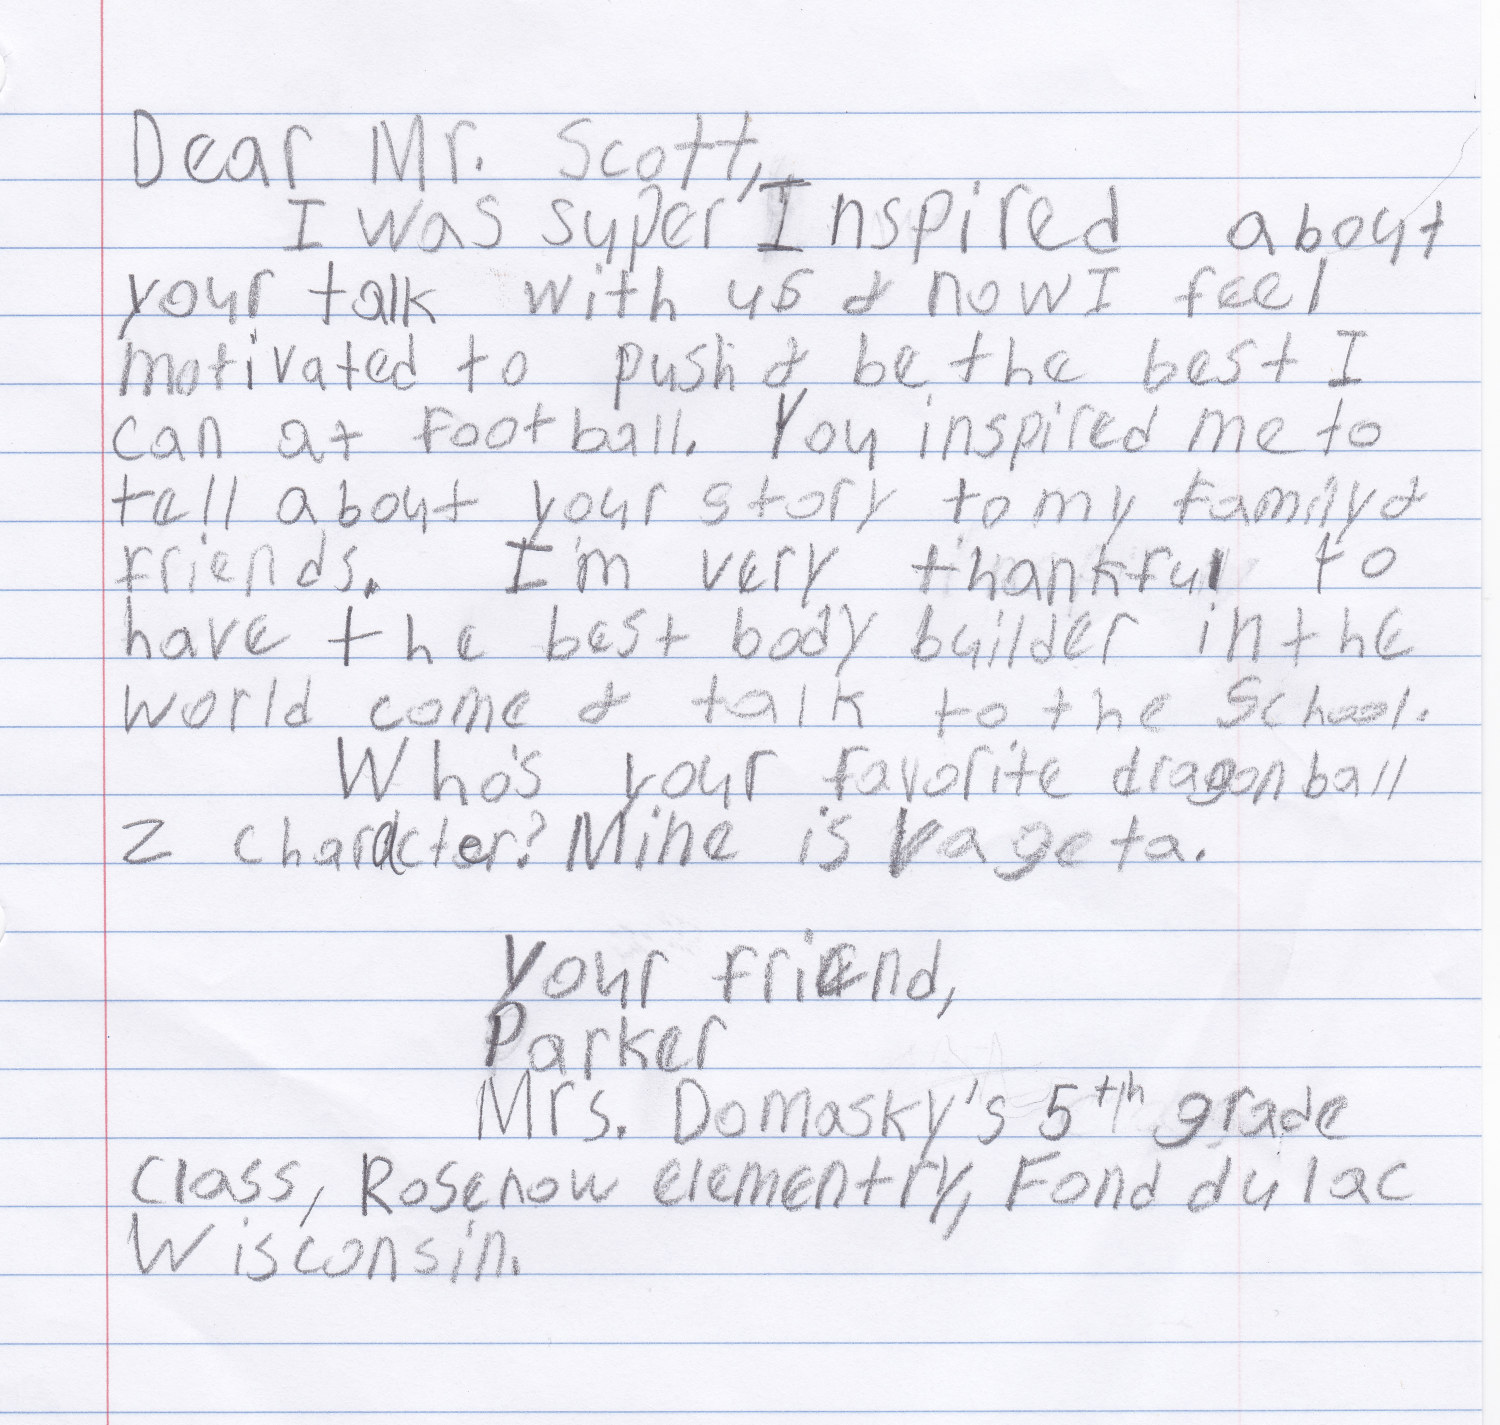 Dear Mr. Scott,
I was super Inspired about
your talk with us & now I feel
motivated to push & be the best I
can at football. You inspired me to
tell about your story to my family &
friends. I'm very thankful to
have the best body builder in the
world come & talk to the School.
Who's your favorite dragonball
Z character? Mine is Vageta.
Your friend,
Parker
Mrs. Domasky's 5th grade
Class, Rosenow elementry, Fond du lac
Wisconsin.